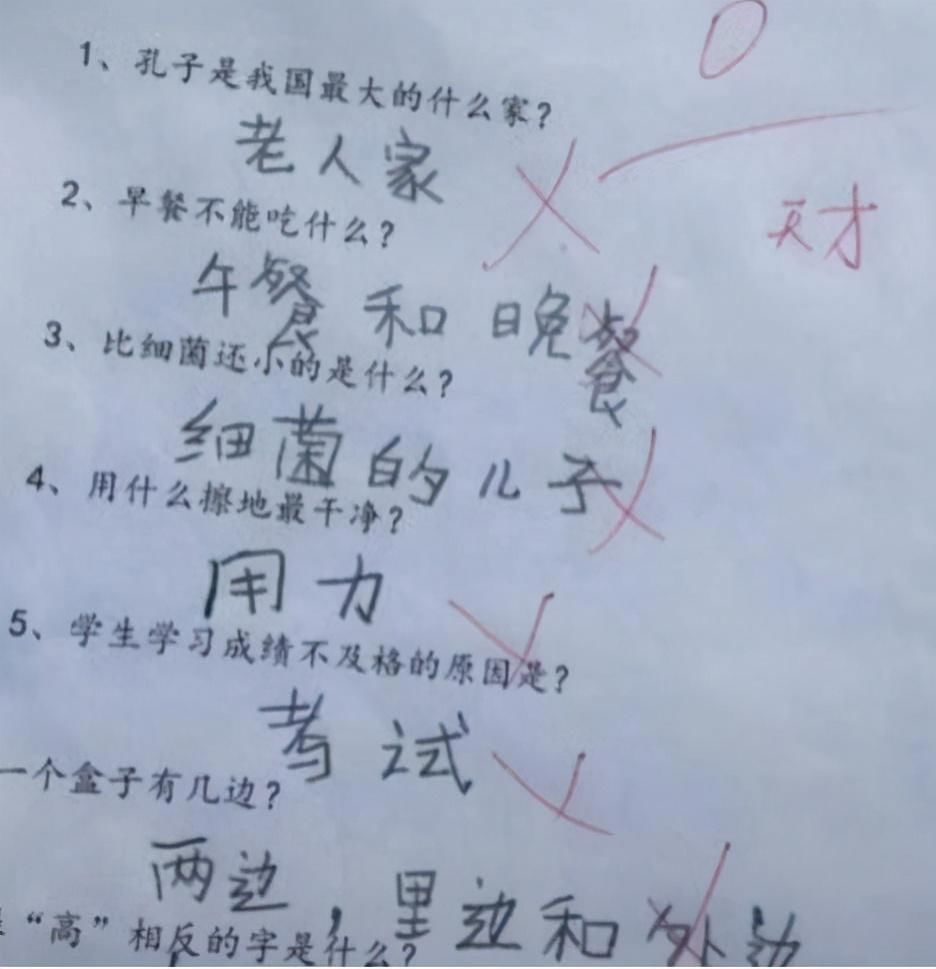 0
1、孔子是我国最大的什么家?
老人家
天才
2、早餐不能吃什么?
午餐和晚餐
3、比细菌还小的是什么?
细菌的儿子
4、用什么擦地最干净?
用力
5、学生学习成绩不及格的原因是?
考试
一个盒子有几边?
两边，里边和外边
“高”相反的字是什么?